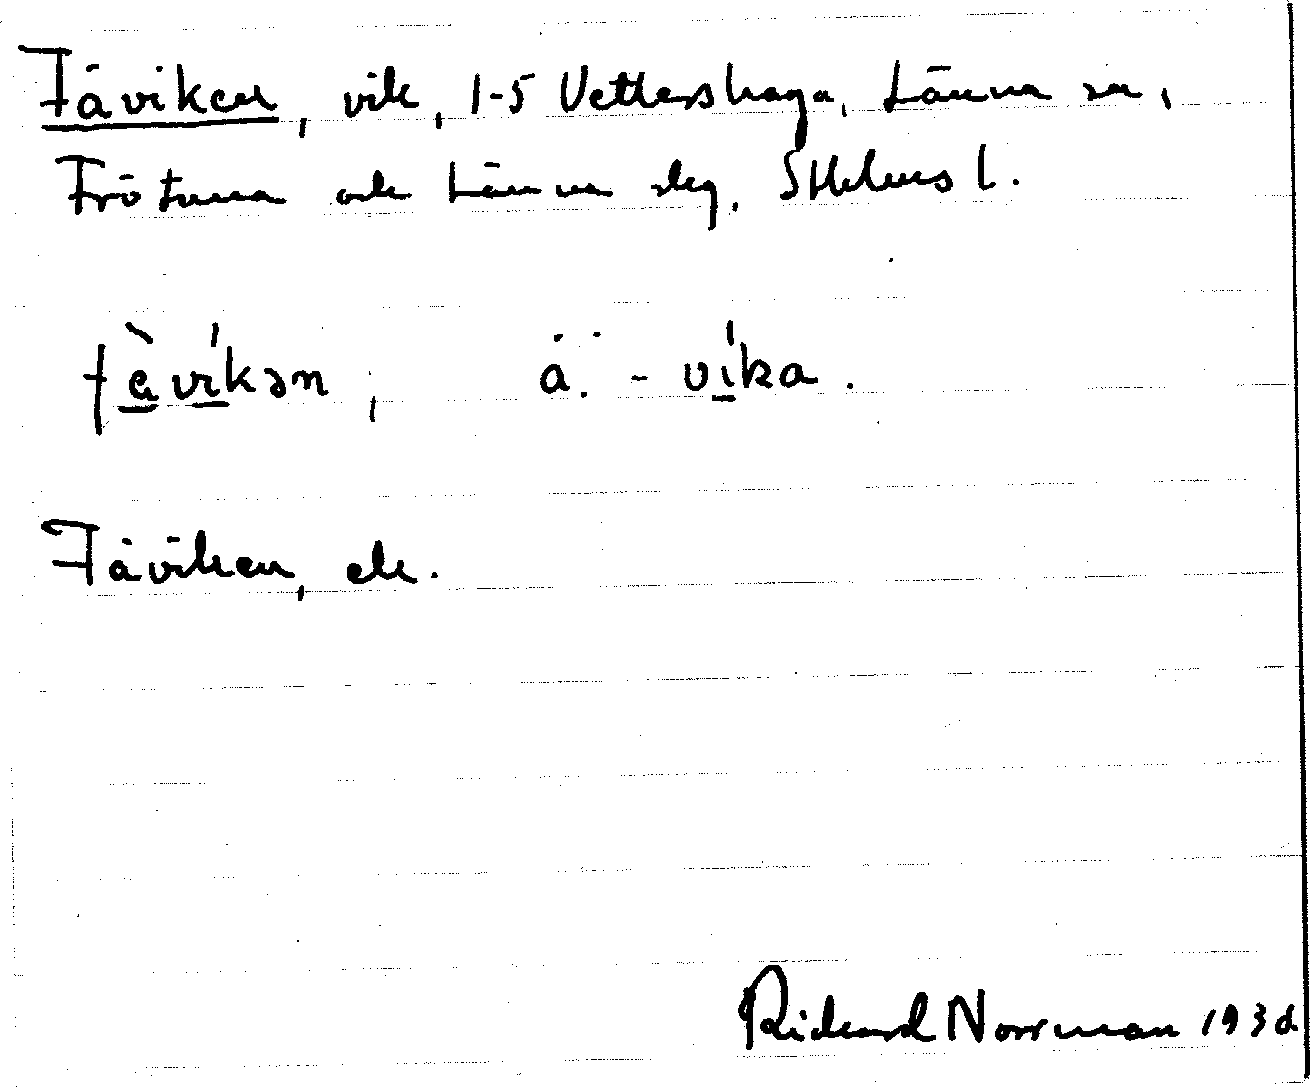 Fåviken, vik, 1-5 Vettershaga, Länna sn,
Frötuna och Länna skg, Sthlms l.
fèvíkən, ä. - víka.
Fåviken, ek.
Rickard Norrman 193